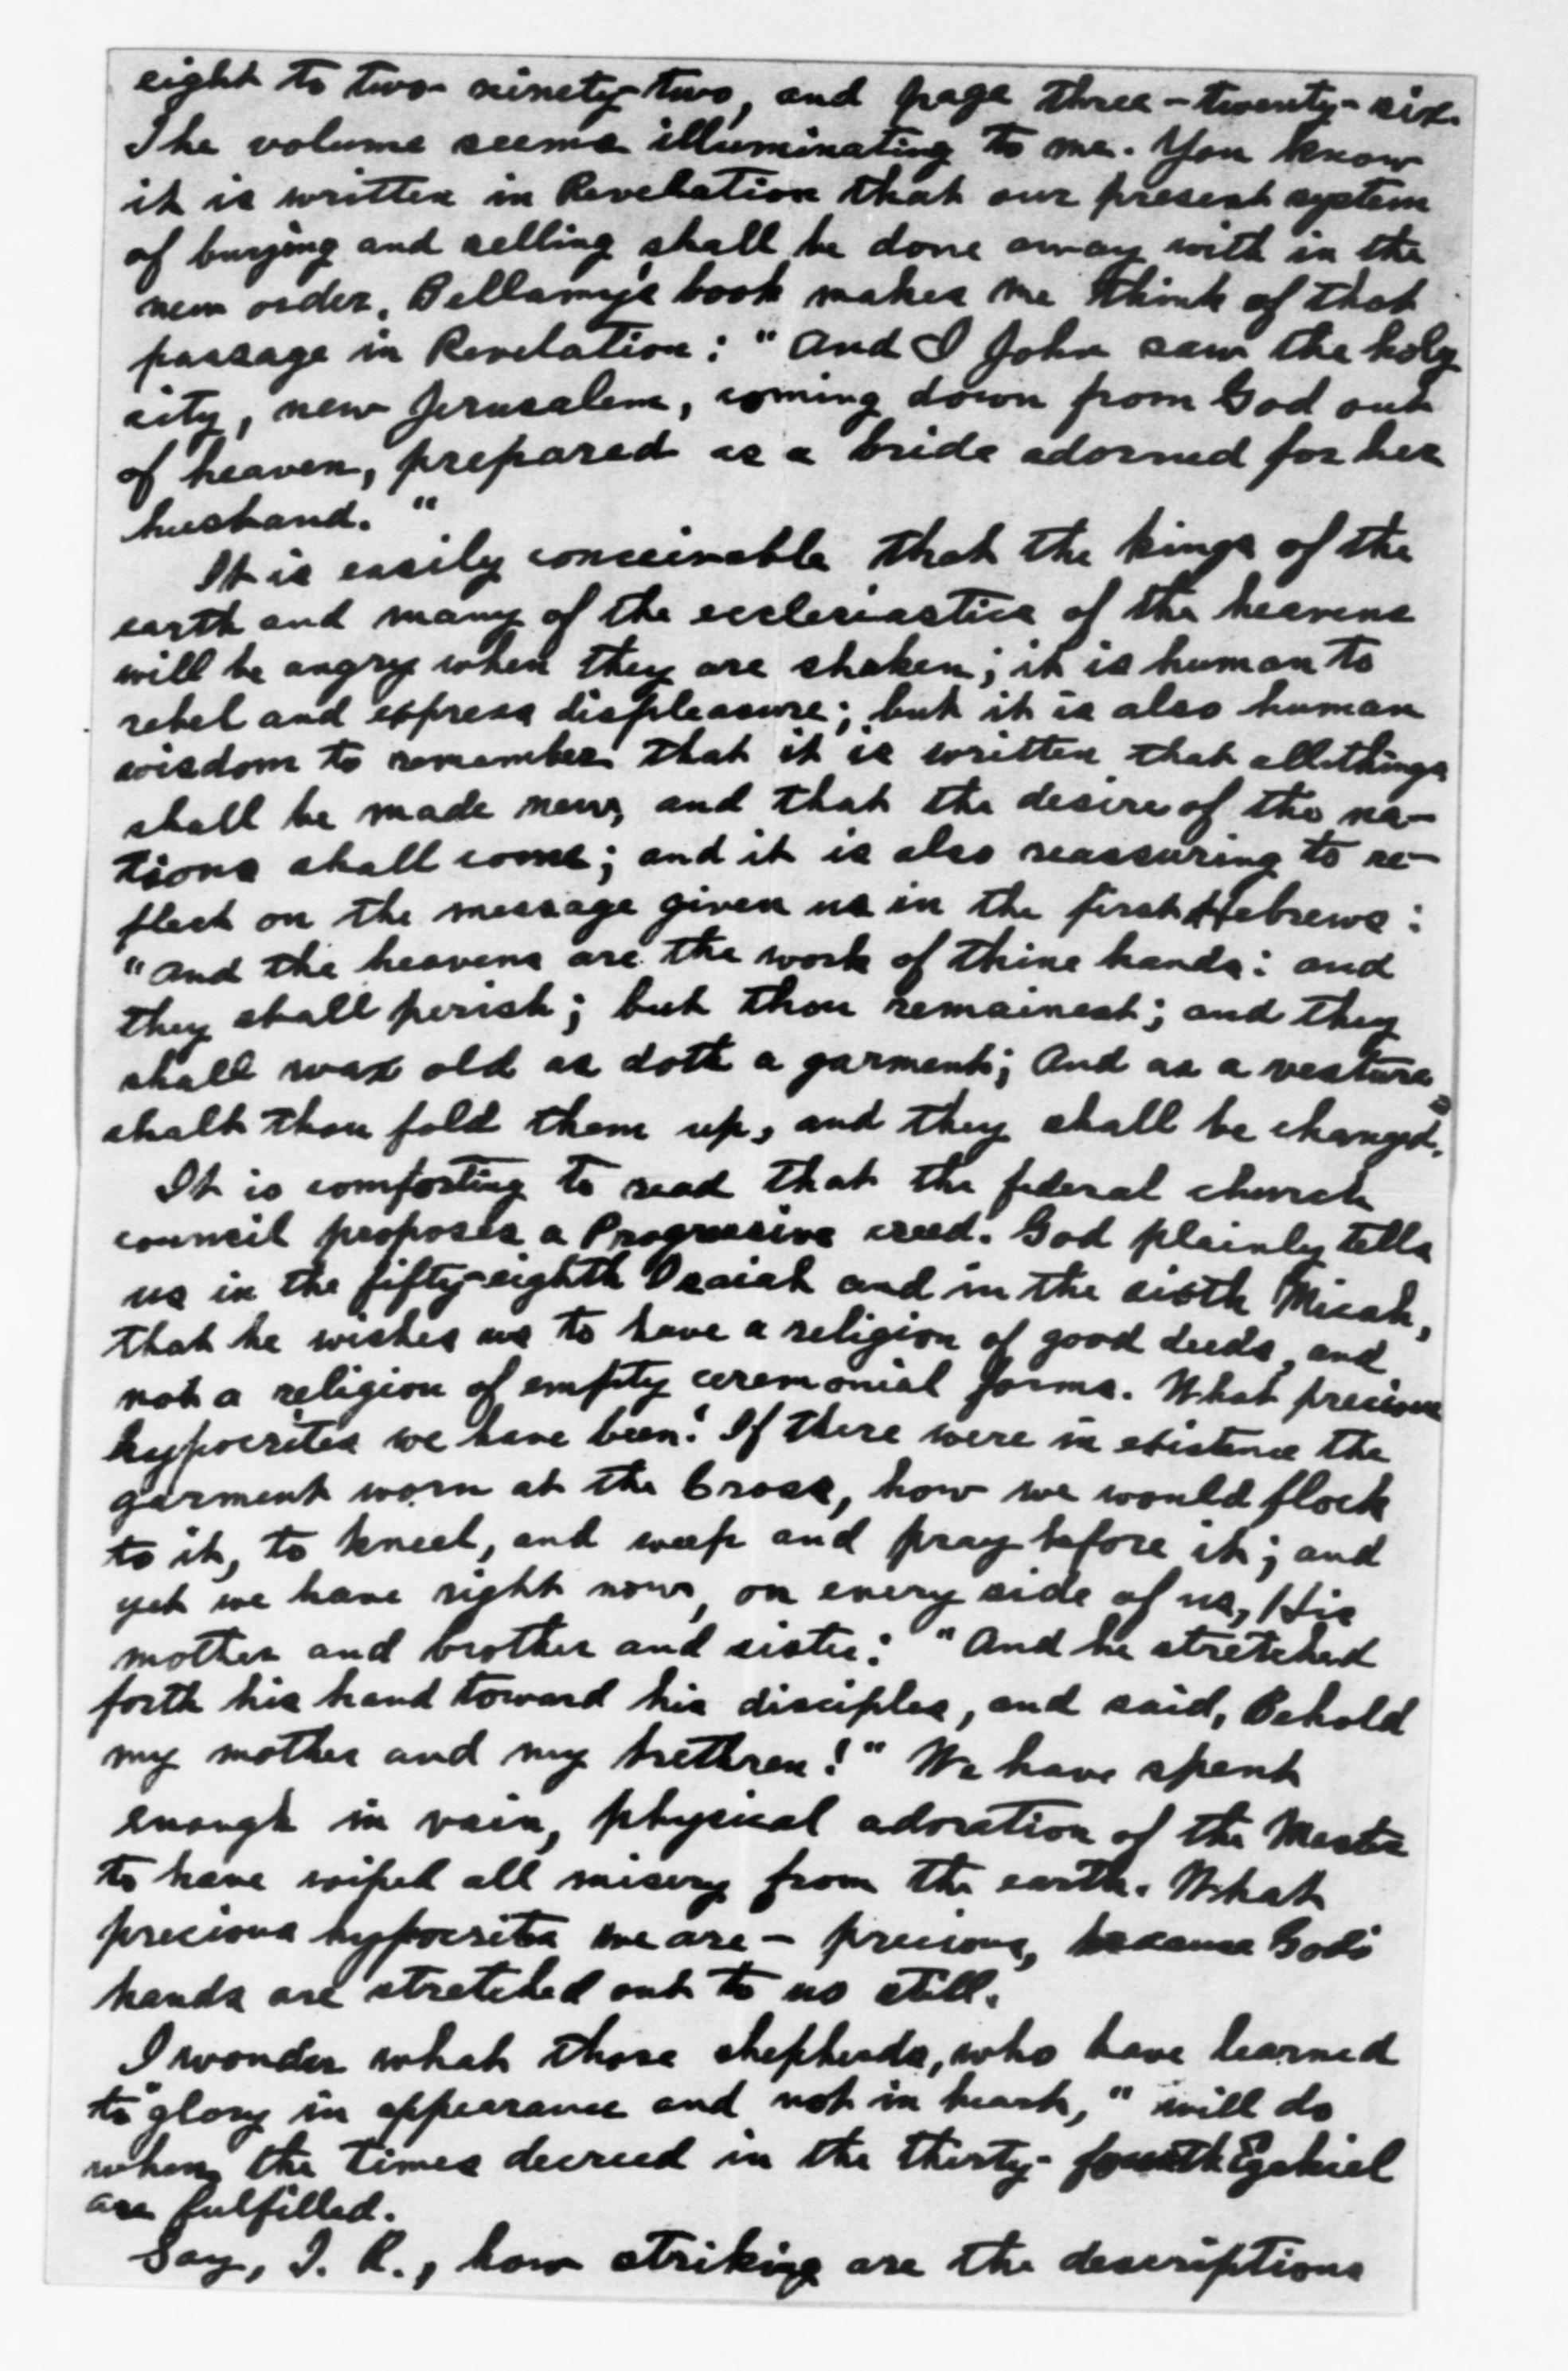 eight to two-ninety-two, and page three-twenty-six.
The volume seems illuminating to me. You know
it is written in Revelation that our present system
of buying and selling shall be done away with in the
new order. Bellamy's book makes me think of that
passage in Revelation: "And I John saw the holy
city, new Jerusalem, coming down from God out
of heaven, prepared as a bride adorned for her
husband."
It is easily conceivable that the kings of the
earth and many of the ecclesiastics of the heavens
will be angry when they are shaken; it is human to
rebel and express displeasure; but it is also human
wisdom to remember that it is written that all things
shall be made new, and that the desire of the na-
tions shall come; and it is also reassuring to re-
flect on the message given us in the first Hebrews:
"And the heavens are the work of thine hands: and
they shall perish; but thou remainest; and they
shall wax old as doth a garment; And as a vesture
shalt thou fold them up, and they shall be changed."
It is comforting to read that the federal church
council proposes a Progressive creed. God plainly tells
us in the fifty-eighth Isaiah and in the sixth Micah,
that he wishes us to have a religion of good deeds, and
not a religion of empty ceremonial forms. What precious
hypocrites we have been! If there were in existence the
garment worn at the Cross, how we would flock
to it, to kneel, and weep and pray before it; and
yet we have right now, on every side of us, His
mother and brother and sister: "And he stretched
forth his hand toward his disciples, and said, Behold
my mother and my brethren!" We have spent
enough in vain, physical adoration of the Master
to have wiped all misery from the earth. What
precious hypocrites we are - precious, because God's
hands are stretched out to us still.
I wonder what those shepherds, who have learned
to "glory in appearance and not in heart," will do
when the times decreed in the thirty-fourth Ezekiel
are fulfilled.
Say, I. R., how striking are the descriptions